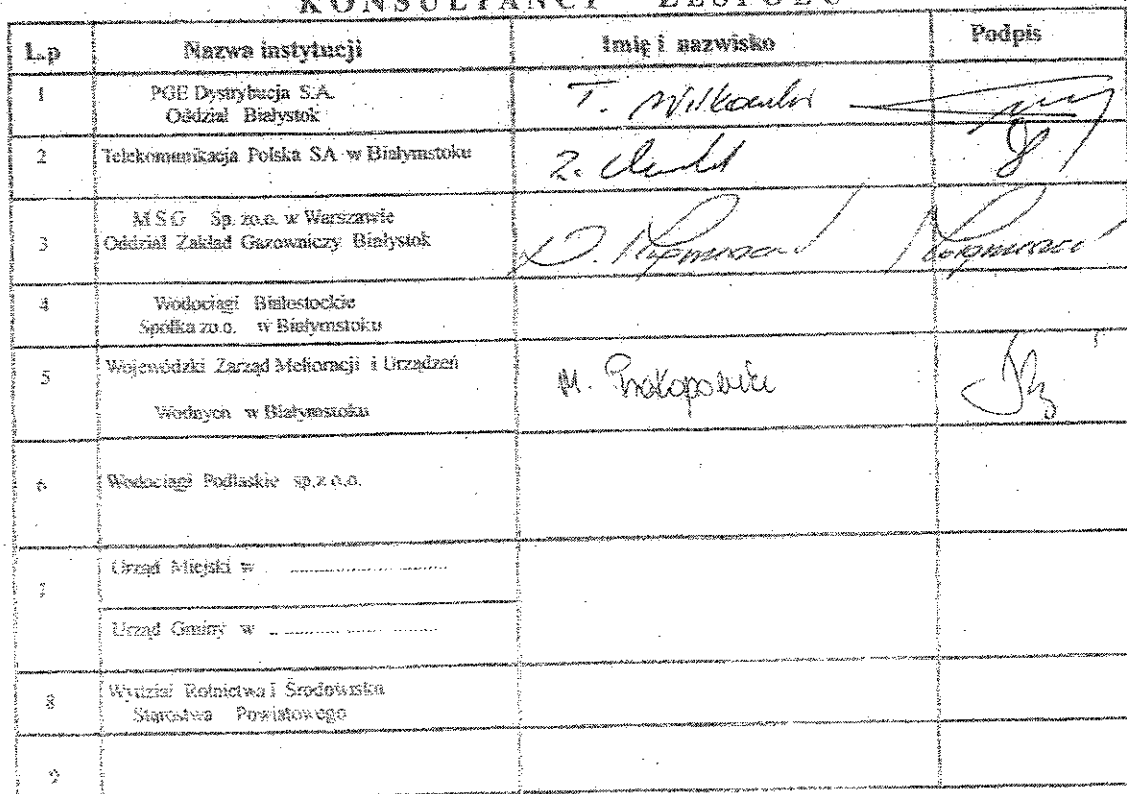 KONSULTANCI ZESPOŁU
L.p Nazwa instytucji Imię i nazwisko Podpis
1 PGE Dystrybucja S.A. T. Wilkowski
Oddział Białystok
2 Telekomunikacja Polska SA w Białymstoku Z.
M S G Sp. zo.o. w Warszawie
3 Oddział Zakład Gazowniczy Białystok D.
4 Wodociągi Białostockie
Spółka zo.o. w Białymstoku
5 Wojewódzki Zarząd Melioracji i Urządzeń M. Prokopowicz
Wodnych w Białymstoku
6 Wodociągi Podlaskie sp.z o.o.
7 Urząd Miejski w ..............................
Urząd Gminy w ..............................
8 Wydział Rolnictwa I Środowiska
Starostwa Powiatowego
9